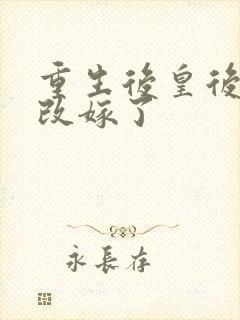 重生後皇後
改嫁了
永長存